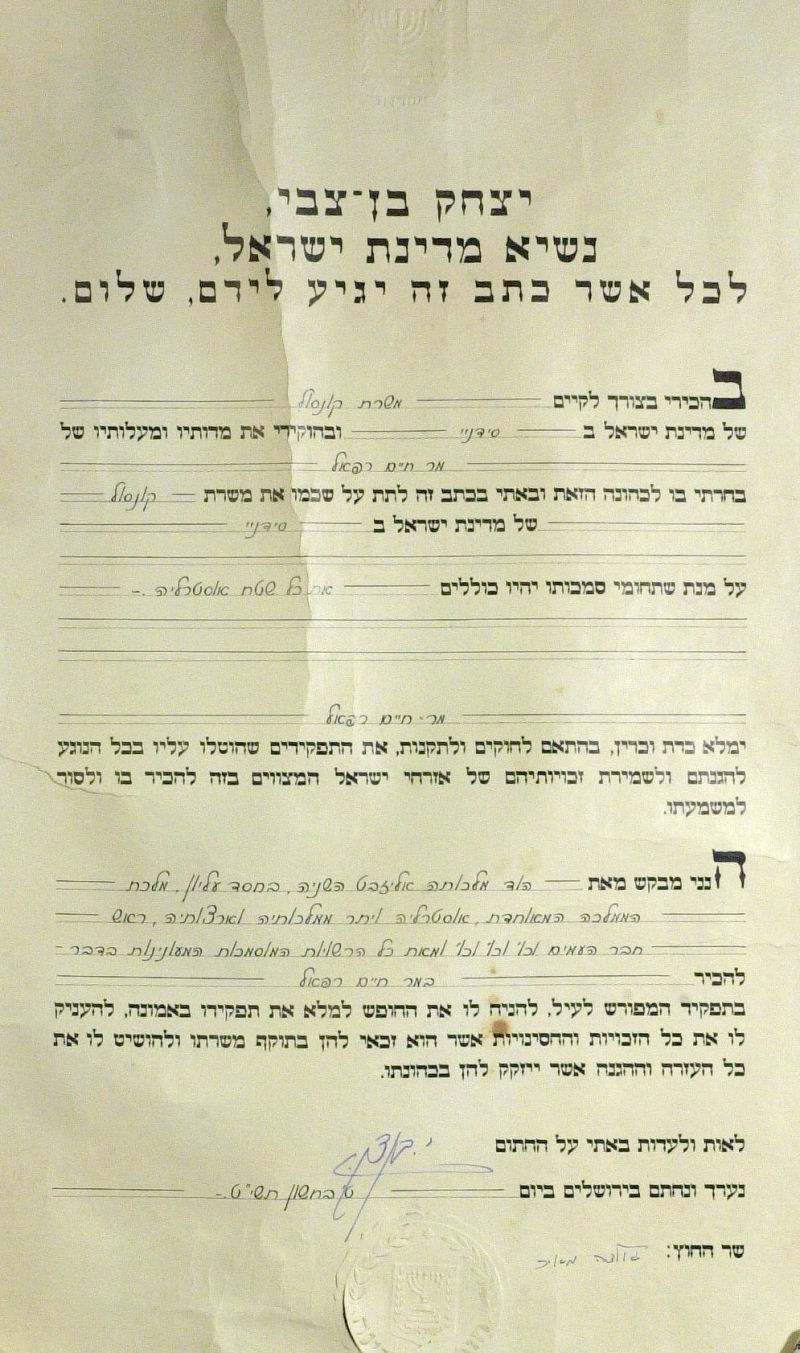 יצחק בן־צבי,
נשיא מדינת ישראל,
לכל אשר כתב זה יגיע לידם, שלום.
בהכירי בצורך לקיים משרת קונסול
של מדינת ישראל ב סידניי ובהוקירי את מדותיו ומעלותיו של
מר חיים רפאל
בחרתי בו לכהונה הזאת ובאתי בכתב זה לתת על שכמו את משרת קונסול
של מדינת ישראל ב סידניי
על מנת שתחומי סמכותו יהיו כוללים את כל שטח אוסטרליה.-
מר חיים רפאל
ימלא כדת וכדין, בהתאם לחוקים ולתקנות, את התפקידים שהוטלו עליו בכל הנוגע
להגנתם ולשמירת זכויותיהם של אזרחי ישראל המצווים בזה להכיר בו ולסור
למשמעתו.
הנני מבקש מאת הוד מלכותה אליזבט השניה, בחסד עליון, מלכת
הממלכה המאוחדת, אוסטרליה ויתר ממלכותיה וארצותיה, ראש
חבר העמים וכו' וכו' וכו' ומאת כל הרשויות המוסמכות המעונינות בדבר
להכיר במר חיים רפאל
בתפקיד המפורש לעיל, להניח לו את החופש למלא את תפקידו באמונה, להעניק
לו את כל הזכויות והחסינויות אשר הוא זכאי להן בתוקף משרתו ולהושיט לו את
כל העזרה וההגנה אשר ייזקק להן בכהונתו.
לאות ולעדות באתי על החתום
נערך ונחתם בירושלים ביום ט' בחשון תשי"ט.-
שר החוץ: גולדה מאיר